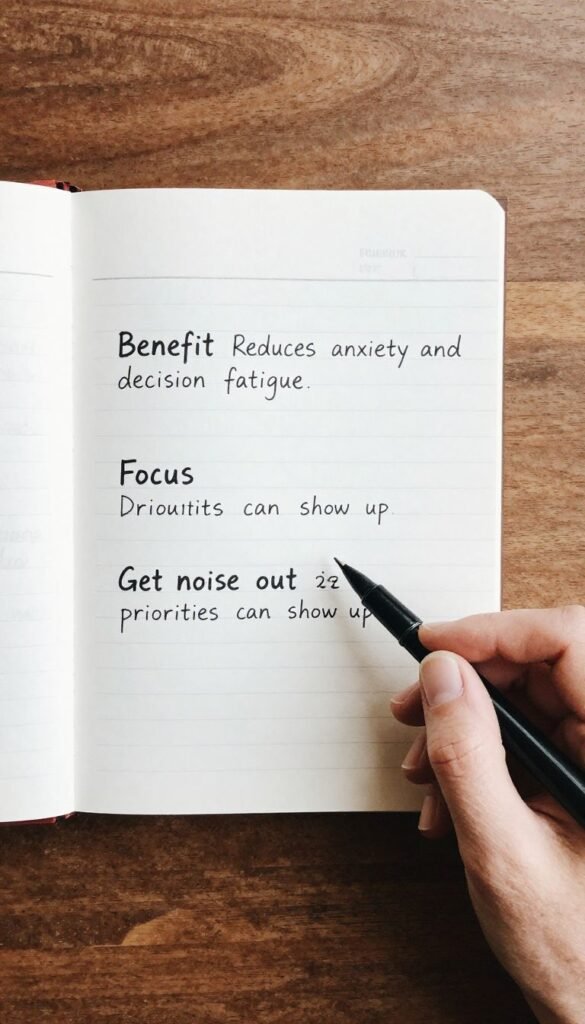 Benefit Reduces anxiety and
decision fatigue.
Focus
can show up.
Get noise out
priorities can show up